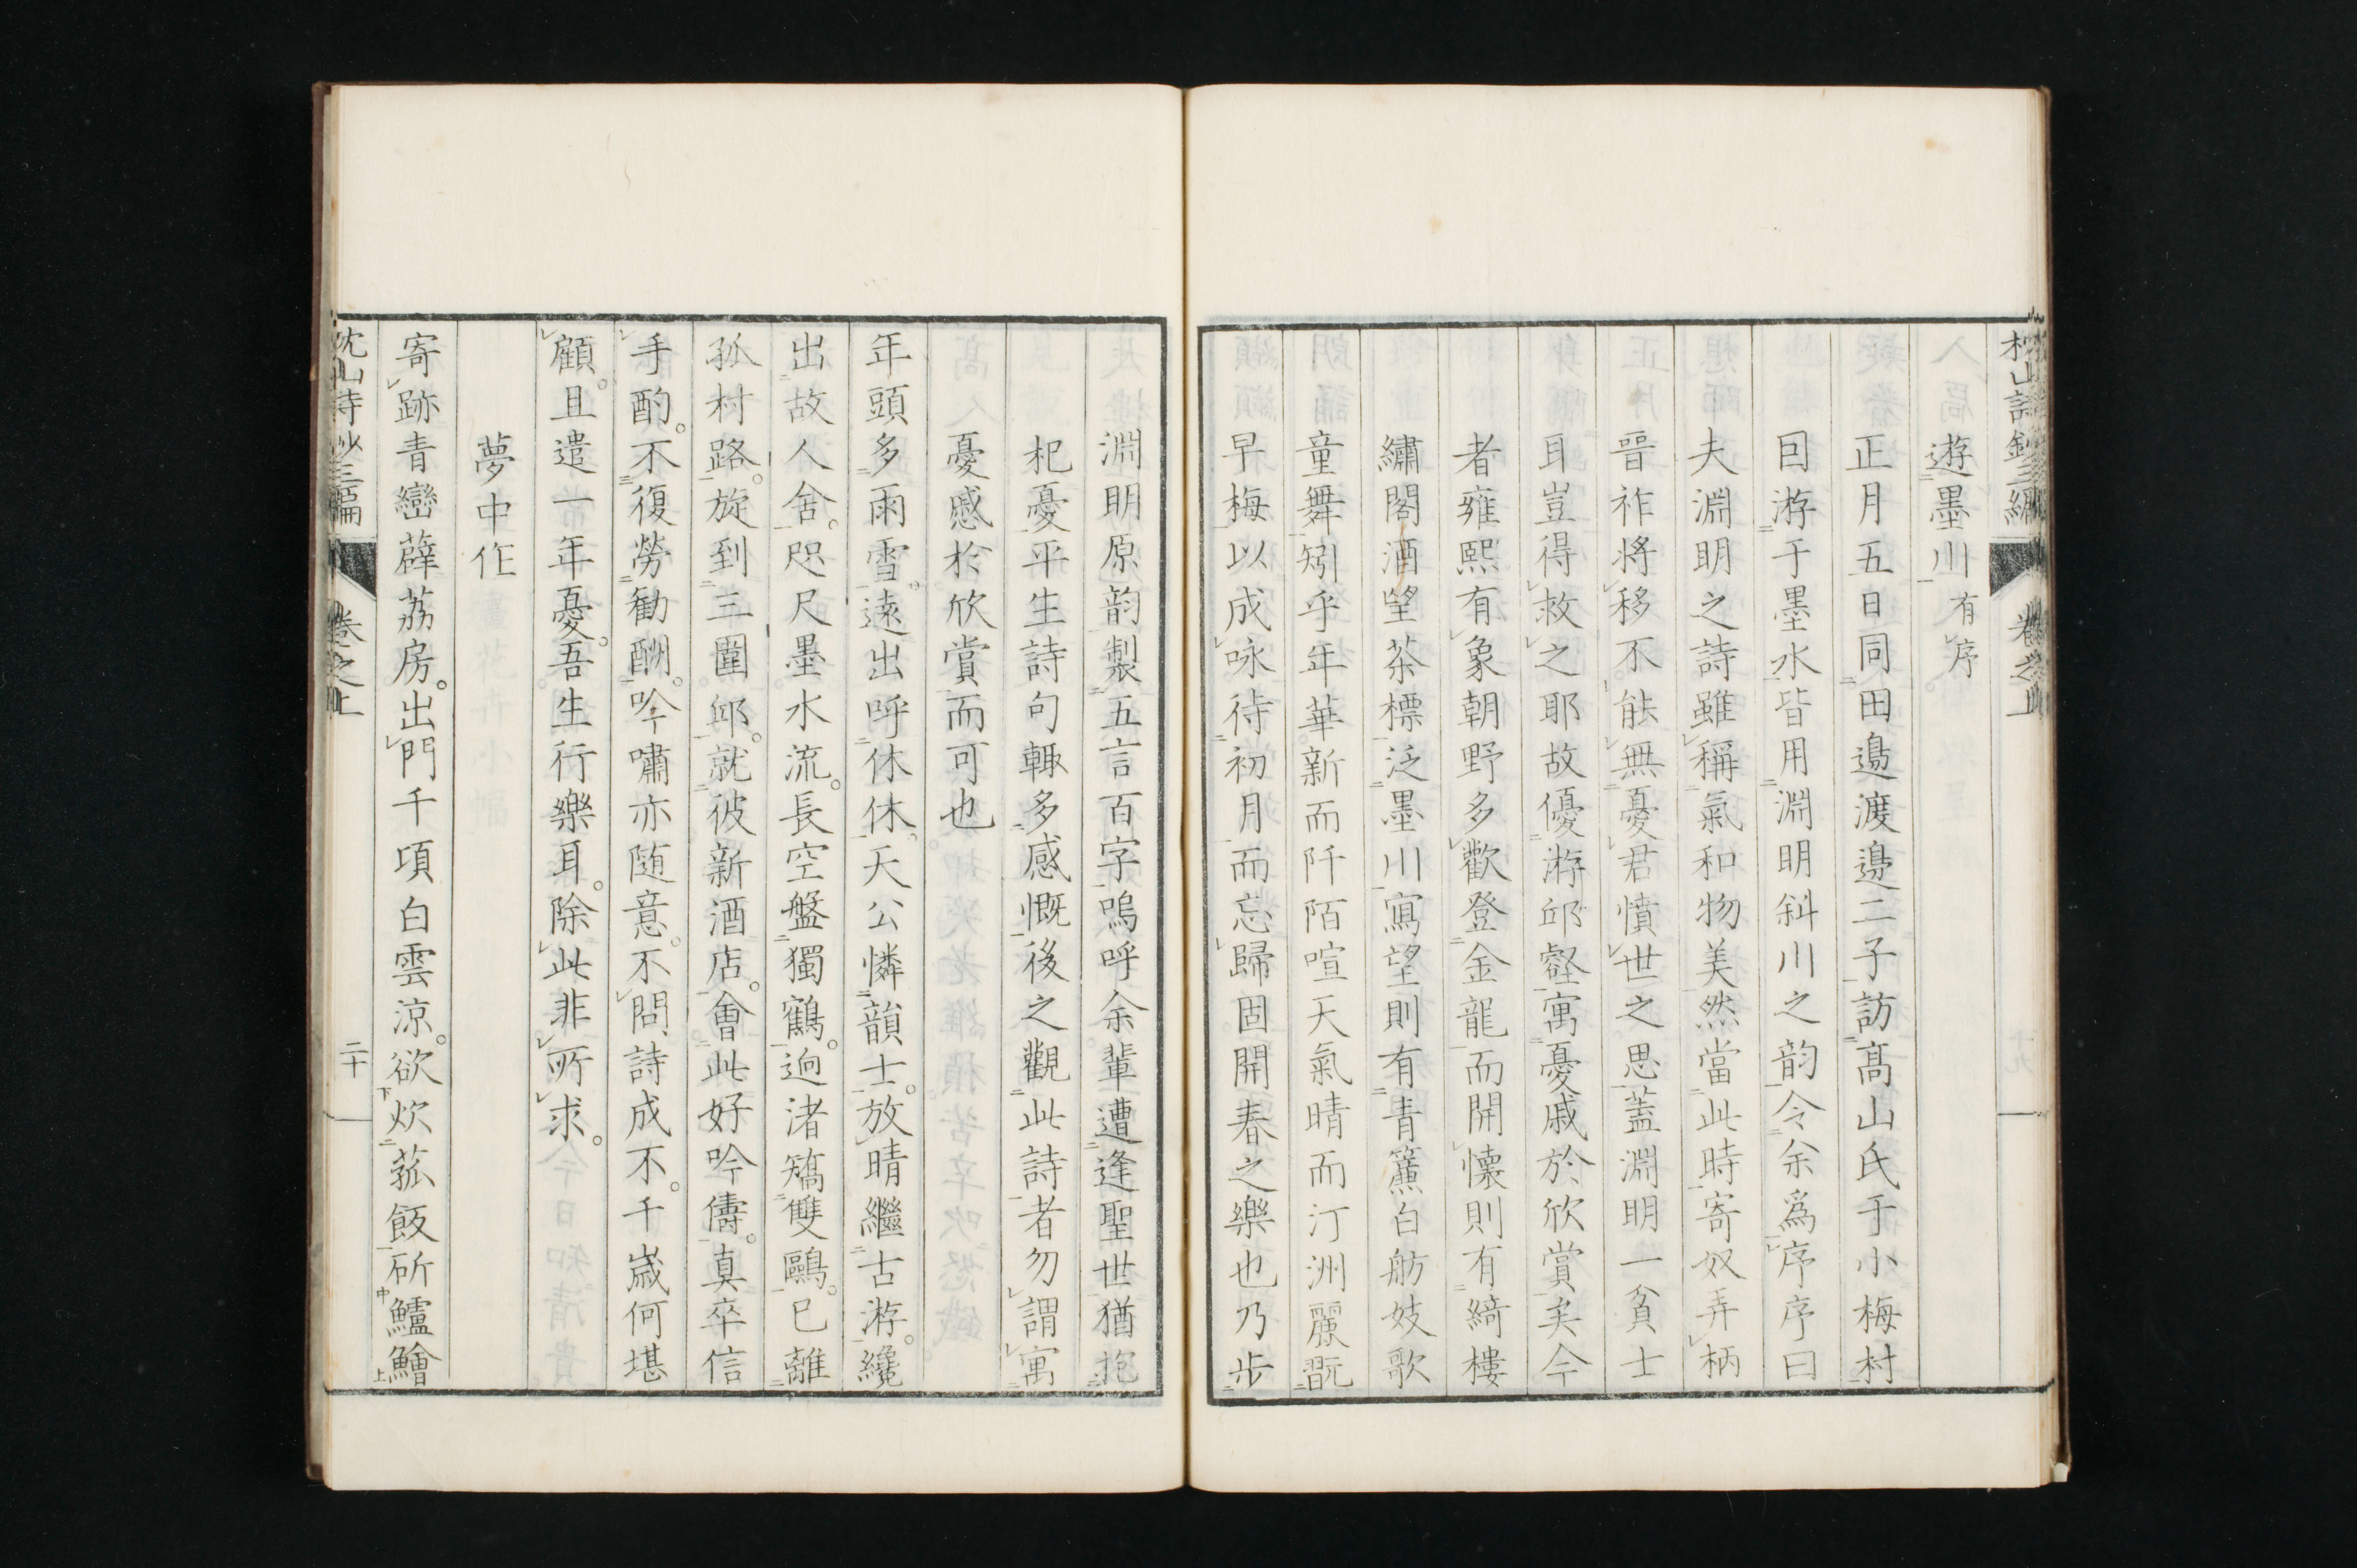 枕山詩鈔三編 卷之上
遊墨川有序
正月五日同田邉渡邉二子訪髙山氏于小梅村
因游于墨水皆用淵明斜川之韵令余爲序序曰
夫淵明之詩雖稱氣和物美然當此時寄奴弄柄
晉祚將移不能無憂君憤世之思蓋淵明一貧士
耳豈得救之耶故優游邱壑寓憂戚於欣賞矣今
者雍熙有象朝野多歡登金龍而開懷則有綺樓
繡閣酒望茶標泛墨川寫望則有青簾白舫妓歌
童舞矧乎年華新而阡陌喧天氣晴而汀洲麗翫
早梅以成咏待初月而忘歸固開春之樂也乃步
淵明原韵製五言百字嗚呼余輩遭逢聖世猶抱
杞憂平生詩句輙多感慨後之觀此詩者勿謂寓
憂慼於欣賞而可也
年頭多雨雪。遠出呼休休。天公憐韻士。放晴繼古游。纔
出故人舍。咫尺墨水流。長空盤獨鶴。迥渚矯雙鷗。已離
孤村路。旋到三圍邱。就彼新酒店。會此好吟儔。真率信
手酌。不復勞勸酬。吟嘯亦随意。不問詩成不。千嵗何堪
顧。且遣一年憂。吾生行樂耳。除此非所求。
夢中作
寄跡青巒薜荔房。出門千項白雲涼。欲炊菰飯斫鱸鱠
枕山詩鈔三編 卷之上 二十